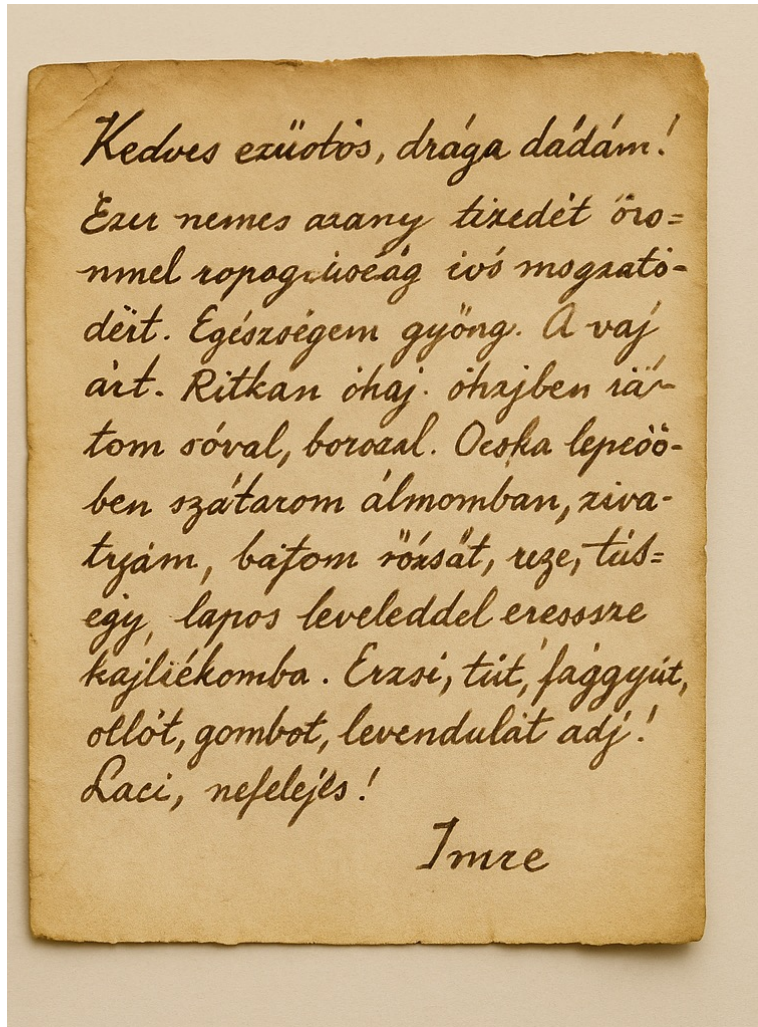 Kedves ezüotös, drága dádám!
Ezer nemes arany tizedét örö=
nmel ivó mogzató-
dért. Egészségem gyöng. A vaj
árt. Ritkan óhaj. óhzjben iá-
tom sóval, borozal. Ocska lepcöö-
ben szátarom álmomban, ziva-
tzjám, bajtom rózsát, reze, tús=
egy, lapos leveleddel eresssze
kajliékomba. Erzsi, tűt, fággyút,
ollót, gombot, levendulát adj!
Laci, nefelejés!
Imre